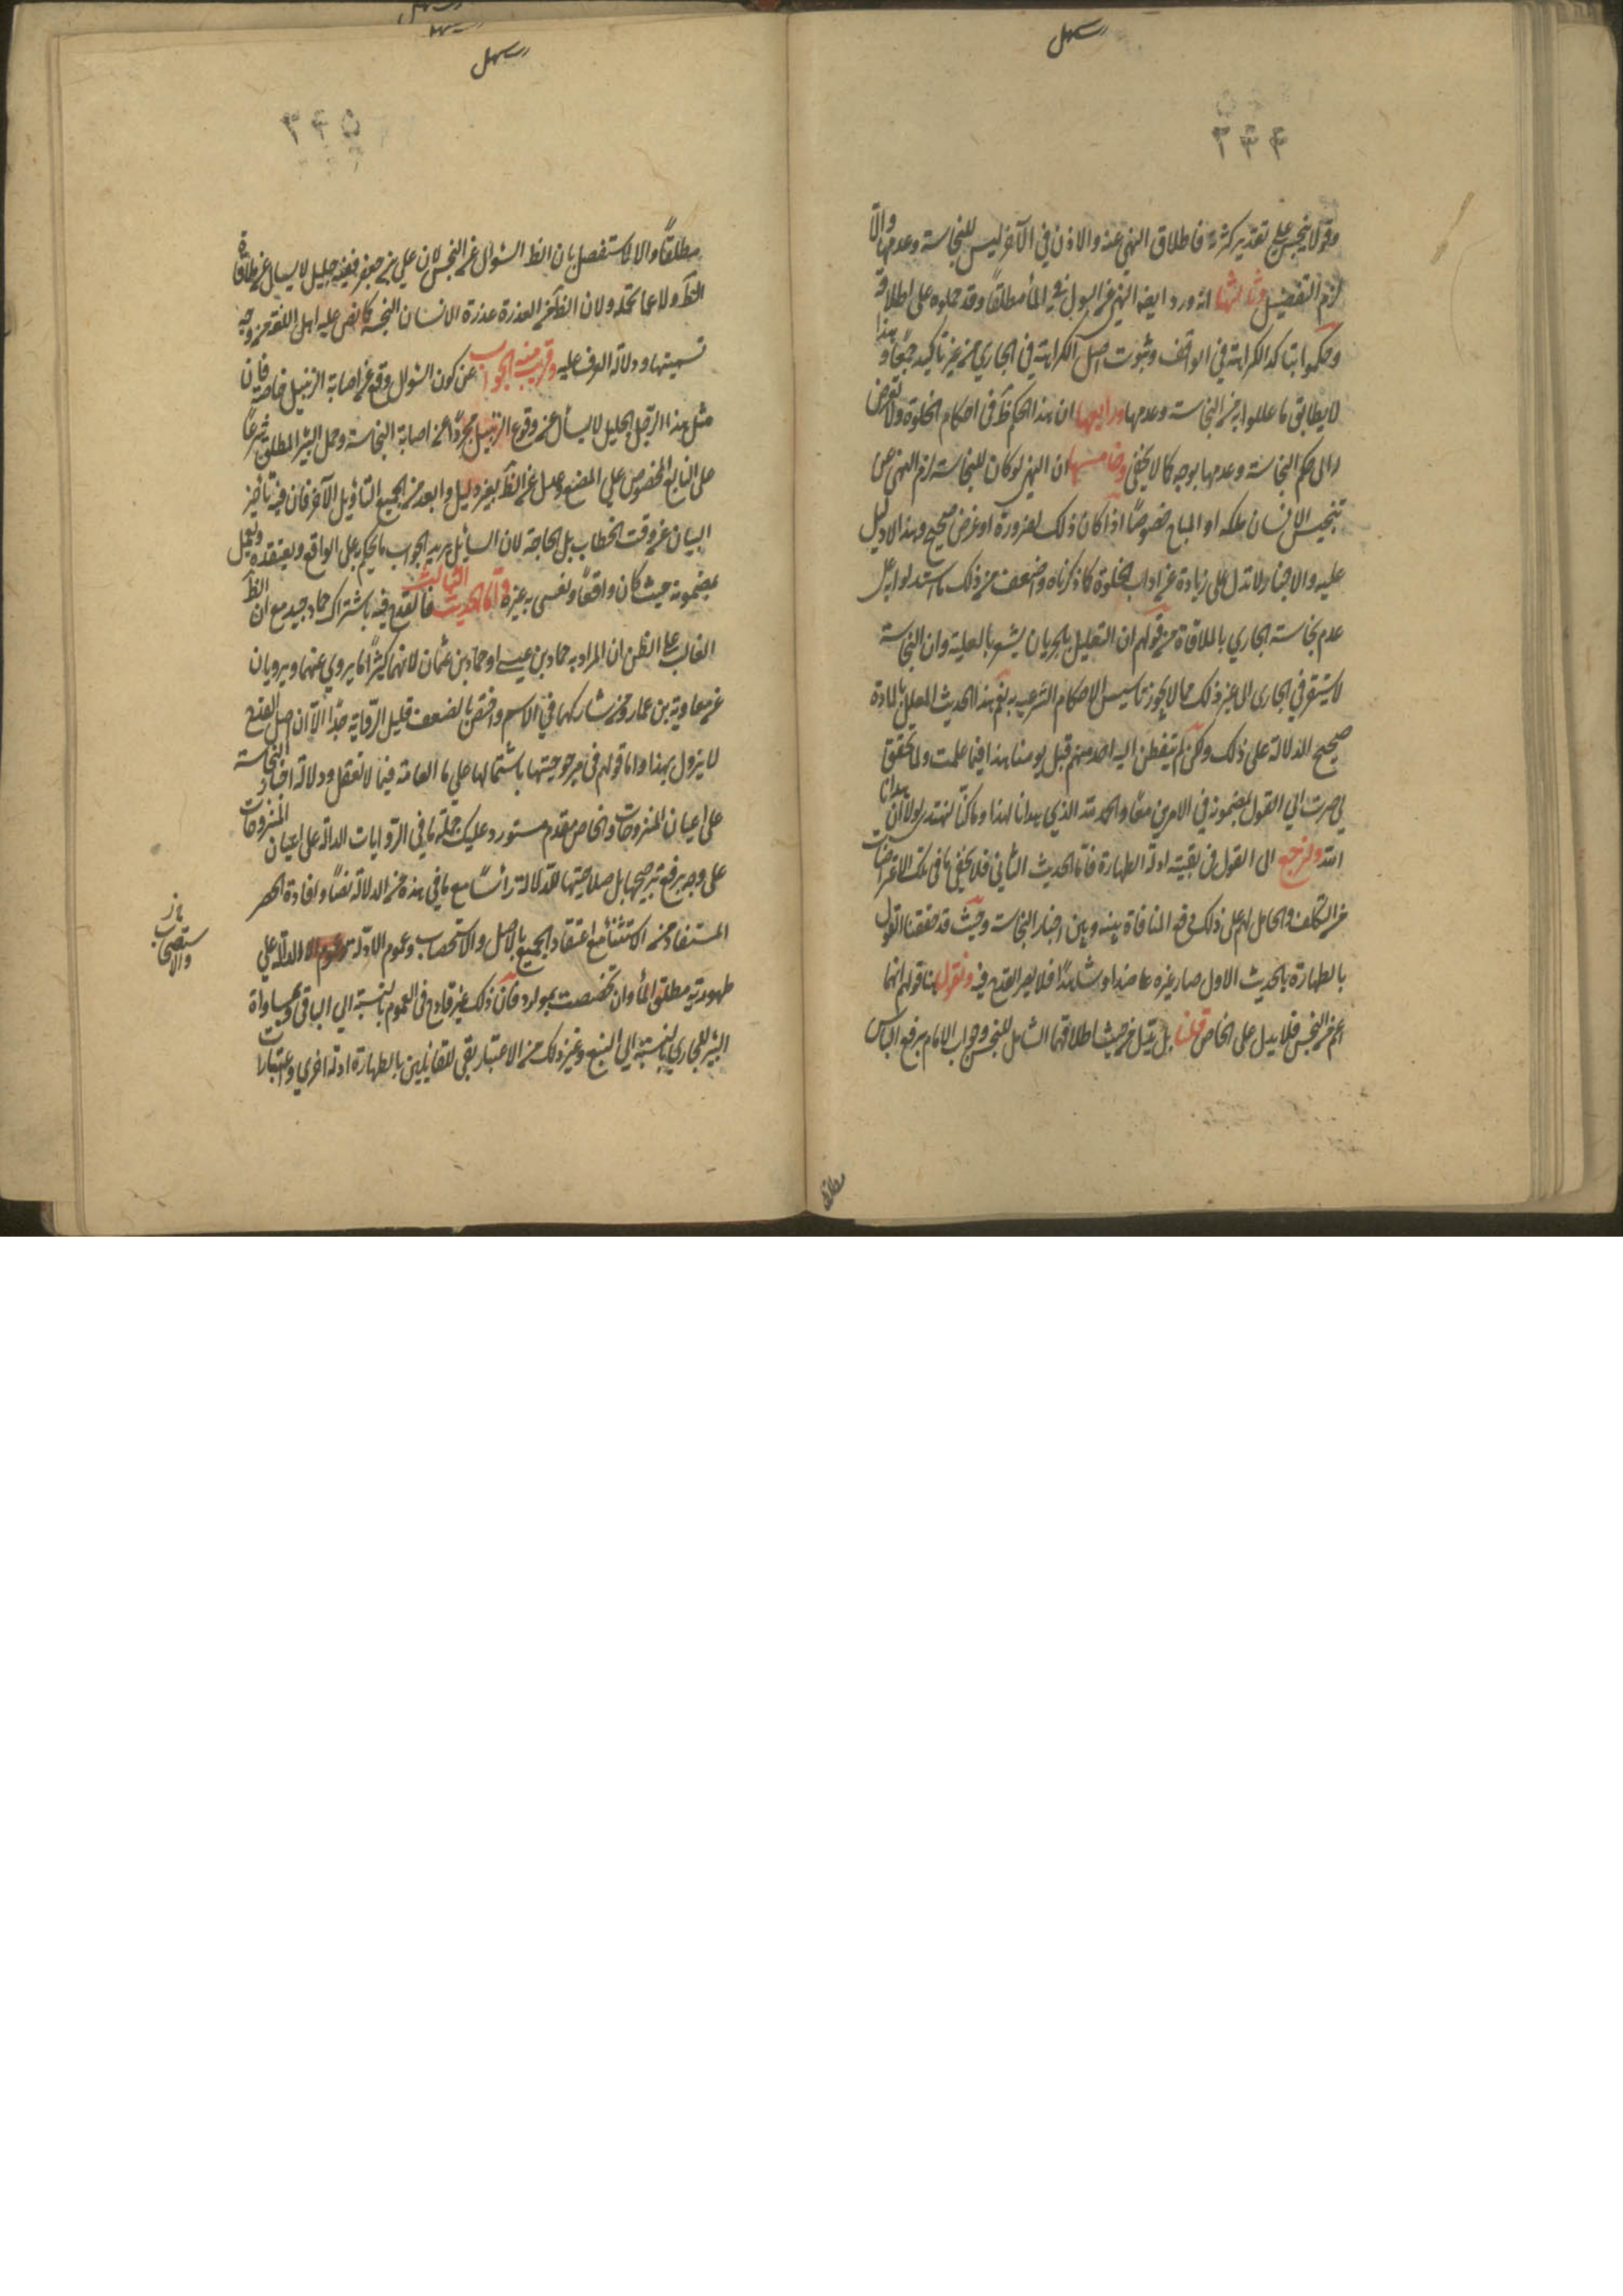 وقد لا ينجس على تقدير كثرته فاطلاق النهي عنه والاذن في الآخر ليس للنجاسة وعدمها والّا
لزم التفصيل وثالثها انه ورد ايضا النهي عن البول في الماء مطلقاً وقد حملوه على اطلاقه
وحكموا بتاكد الكراهة في الواقف وثبوت اصل الكراهة في الجاري من غير تاكيد جمعاً وهذا
لا يطابق ما عللوا به من النجاسة وعدمها ورابعها ان هذا الحكم ظ في احكام الخلوة ولا تعرض
الى حكم النجاسة وعدمها بوجه كما لا يخفى وخامسها ان النهي لو كان للنجاسة لزم النهي عن
تنجيس الانسان ملكه او المباح خصوصاً اذا كان ذلك لضرورة او غرض صحيح وهذا لا دليل
عليه والاخبار لا تدل على زيادة عن اداب الخلوة كما ذكرناه واضعف من ذلك ما استدلوا به على
عدم نجاسة الجاري بالملاقاة من قولهم ان التعليل بالجريان يشعر بالعلية وان النجاسة
لا يستقر في الجاري الى غير ذلك مما لا يجوز تاسيس الاحكام الشرعيه به نعم هذا الحديث المعلل بالمادة
صحيح الدلالة على ذلك ولكن لم يتفطن اليه احد منهم قبل يومنا هذا فيما علمت ولما تحقق
لي صرت الي القول بمضمونه في الامرين معا والحمد لله الذي هدانا لهذا وما كنّا لنهتدي لولا ان هدانا
الله ولنرجع الى القول في بقية ادلة الطهارة فاما الحديث الثاني فلا يخفى ما في تلك الاعتراضات
من التكلف والحامل لهم على ذلك دفع المنافاة بينه وبين اخبار النجاسة وحيث قد حققنا القول
بالطهارة بالحديث الاول صار غيره عاضدا وشاهداً فلا يضر القدح فيه ونقول هنا قولهم انها
اعم من النجس فلا يدل على الخاص قلنا بل يدل من حيث اطلاقها الشامل للنجس وجواب الامام برفع الباس
مطلقا
مطلقاً والا لاستفصل بان الظ السؤال عن النجس لان علي بن جعفر فقيه جليل لا يسال عن ملاقاة
الظ ولا عما تحله ولان الظ من العذرة عذرة الانسان النجسة كما نص عليه اهل اللغة من وجه
تسميتها ودلالة العرف عليه وقريب منه الجواب عن كون السؤال وقع عن اصابة الزنبيل خاصة فان
مثل هذا الرجل الجليل لا يسأل عن وقوع الزنبيل مجرّداً عن اصابة النجاسة وحمل البئر المطلق شرعاً
على النابع المخصوص على المصنع وعدل عن الظ بغير دليل وابعد من الجميع التأويل الآخر فان فيه تاخير
البيان عن وقت الخطاب بل الحاجة لان السائل يريد الجواب ما يحكم به على الواقع ويعتقده ويعمل
بمضمونه حيث كان واقعاً ونفسي به غيره وامّا الحديث الثالث فالقدح فيه باشتراك حماد جيد مع ان الظ
الغالب على الظن ان المراد به حماد بن عيسى او حماد بن عثمان لانهما كثيراً ما يروي عنهما ويرويان
عن معاوية بن عمار ومن شاركها في الاسم واختص بالضعف قليل الرّواية جدّا الّا ان اصل القدح
لا يزول بهذا واما قولهم في مرجوحيتها باشتمالها على ما العامة فيما لا تعقل ودلالة اخبار النجاسة
على اعيان المنزوحات والخاص مقدم ستورد عليك جملة ما في الرّوايات الدالة على اعيان المنزوحات
على وجه يرفع ترجيحها بل صلاحيتها للدلالة رأساً مع ما في هذه من الدلالة نصّاً وافادة الحصر
المستفاد من الاستثناء مع اعتقاد الجميع بالاصل والاستصحاب وعموم الادلة الدالة على
طهورية مطلق الماء وان تخصصت بموارد فان ذلك غير قادح في العموم بالنسبة الى الباقي ومساواة
البئر للجاري بالنسبة الى المنبع وغير ذلك من الاعتبار بقي للقائلين بالطهارة ادلة اخري واعتبارات